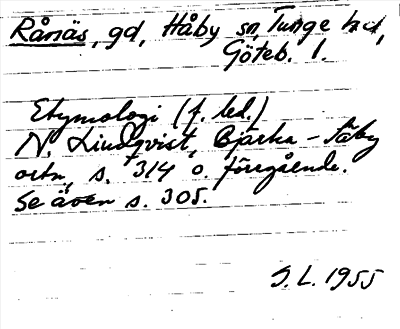 Rånäs, gd, Håby sn, Tunge hd,
Göteb. l.
Etymologi (f. led.)
N. Lindqvist, Bjärka-Säby
ortn, s. 314 o. föregående.
Se även s. 305.
S.L. 1955